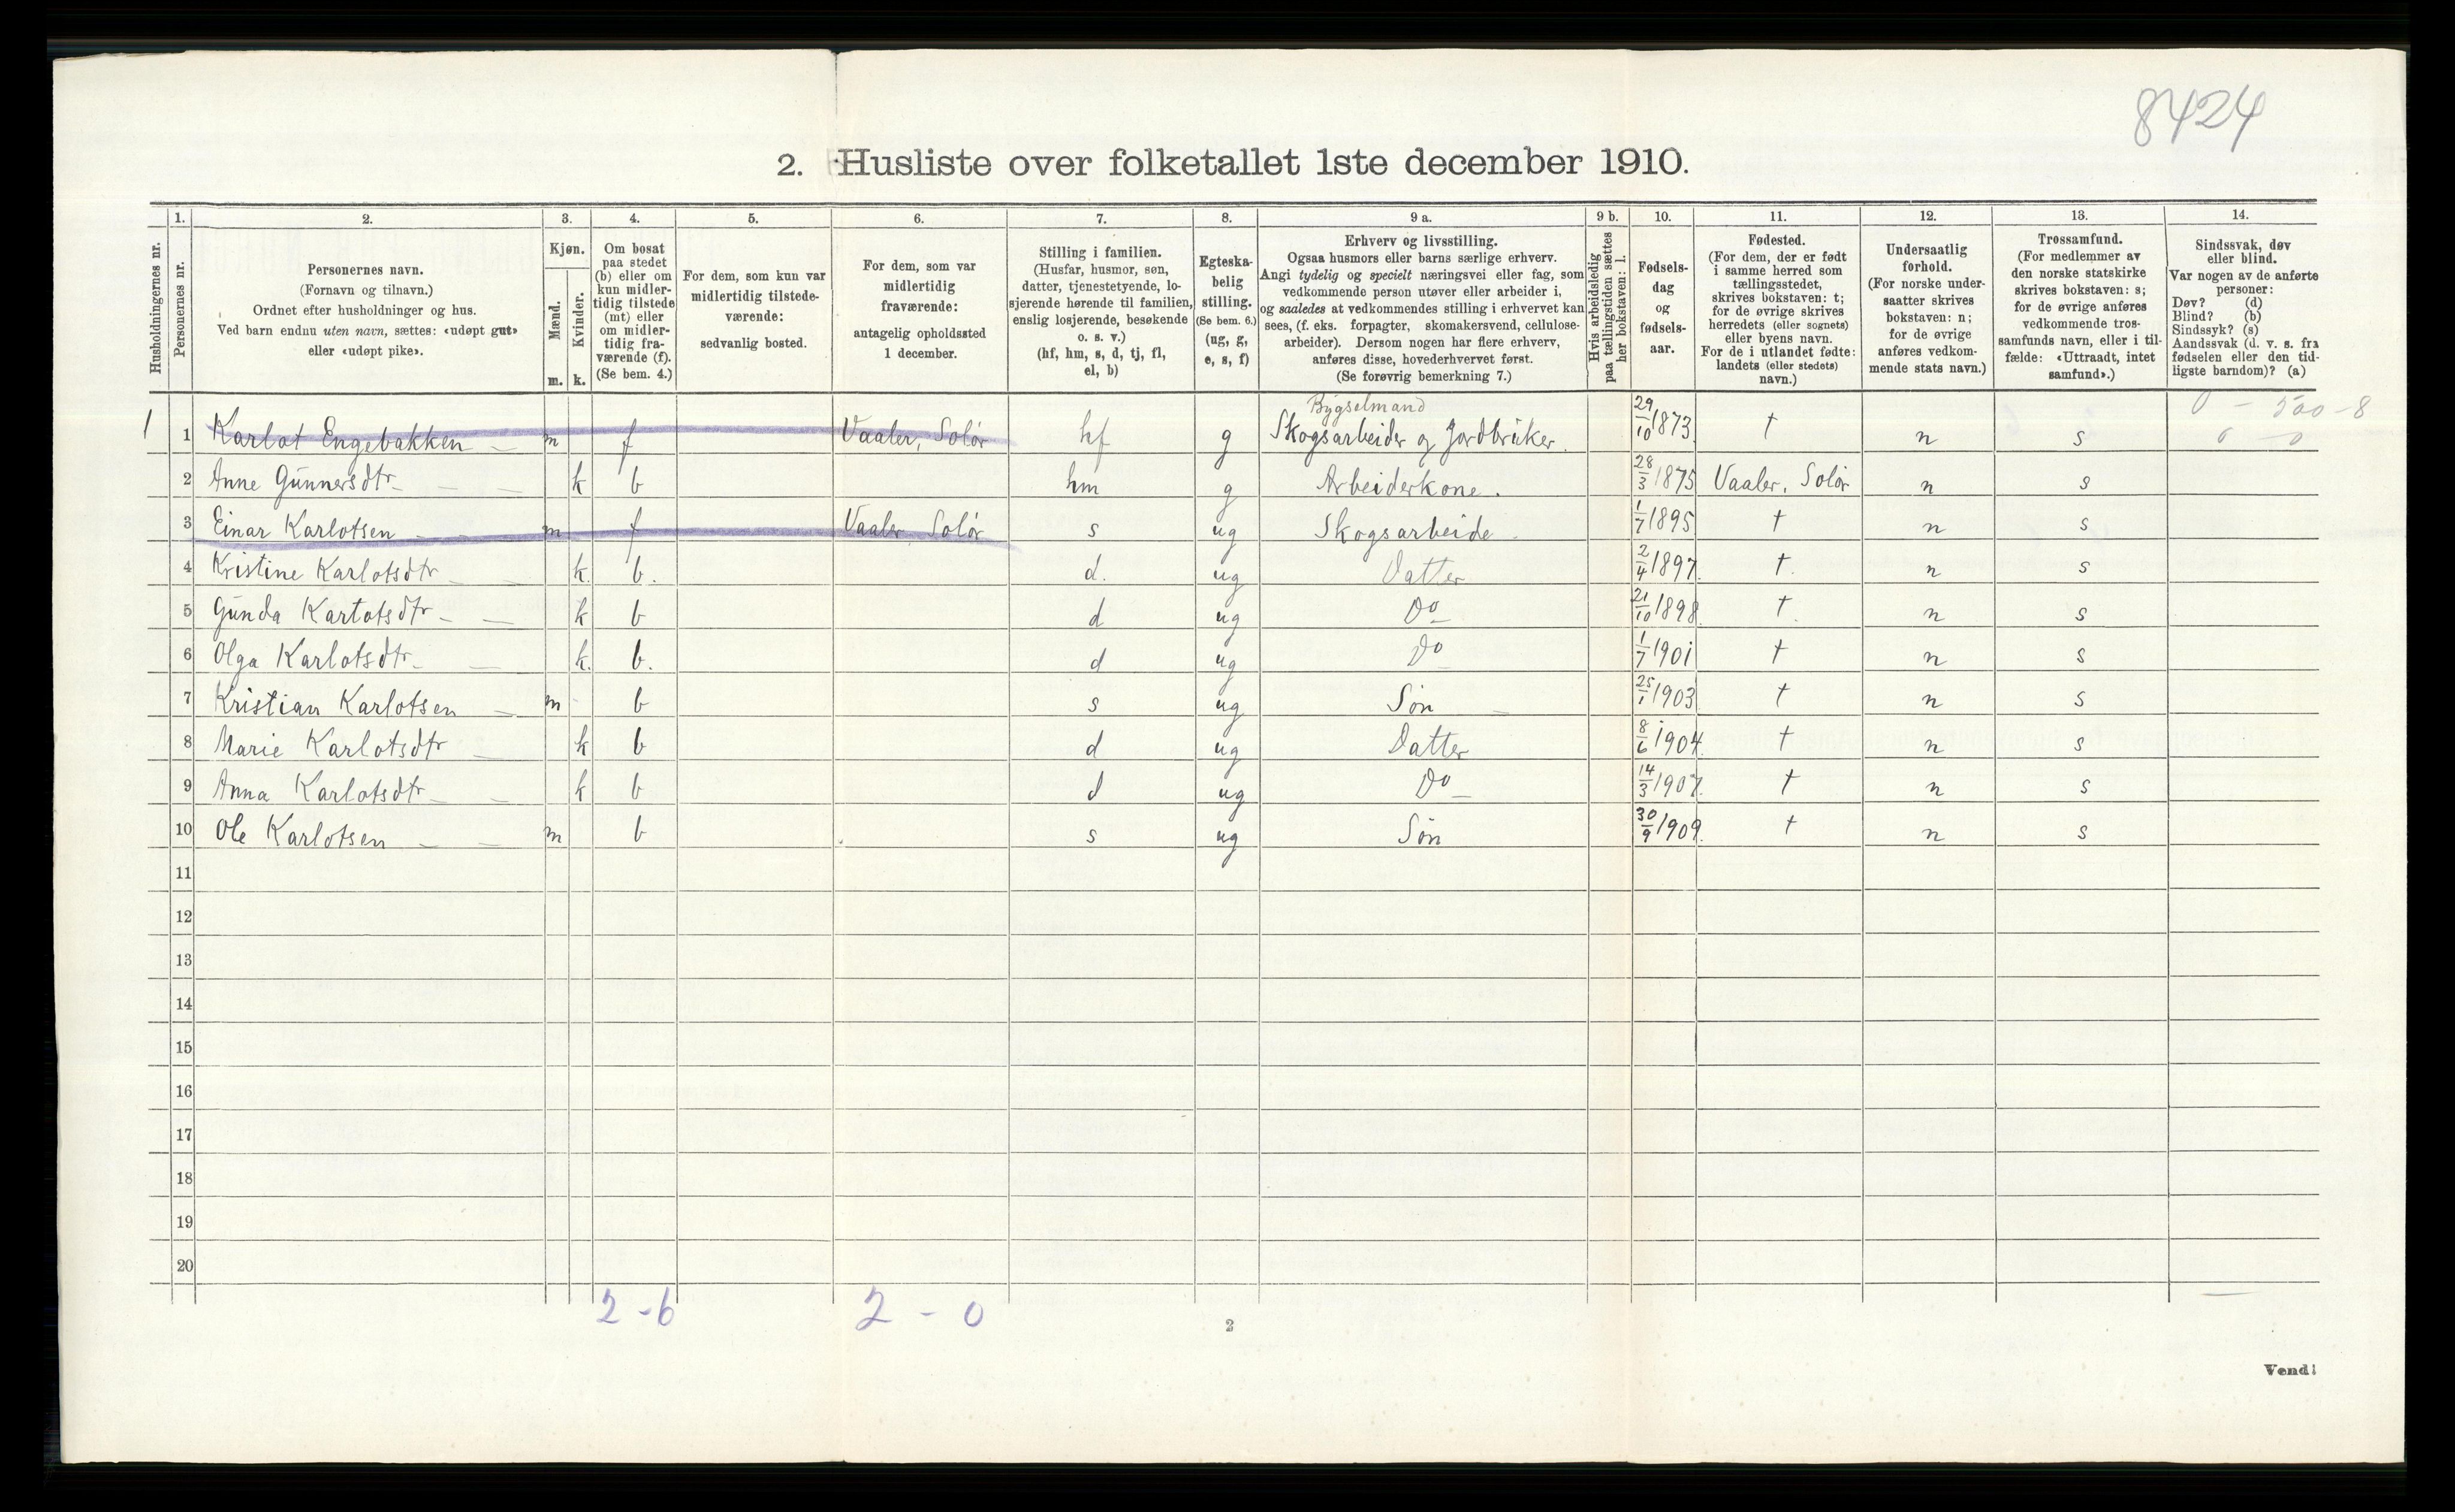 8424
2. Husliste over folketallet 1ste december 1910.
Husholdningernes nr.
1.
Personernes nr.
2.
Personernes navn.
(Fornavn og tilnavn.)
Ordnet efter husholdninger og hus.
Ved barn endnu uten navn, sættes: «udøpt gut»
eller «udøpt pike».
3.
Kjøn.
Mænd.
m.
Kvinder.
k.
4.
Om bosat
paa stedet
(b) eller om
kun midler-
tidig tilstede
(mt) eller
om midler-
tidig fra-
værende (f).
(Se bem. 4.)
5.
For dem, som kun var
midlertidig tilstede-
værende:
sedvanlig bosted.
6.
For dem, som var
midlertidig
fraværende:
antagelig opholdssted
1 december.
7.
Stilling i familien.
(Husfar, husmor, søn,
datter, tjenestetyende, lo-
sjerende hørende til familien,
enslig losjerende, besøkende
o. s. v.)
(hf, hm, s, d, tj, fl,
el, b)
8.
Egteska-
belig
stilling.
(Se bem. 6.)
(ug, g,
e, s, f)
9 a.
Erhverv og livsstilling.
Ogsaa husmors eller barns særlige erhverv.
Angi tydelig og specielt næringsvei eller fag, som
vedkommende person utøver eller arbeider i,
og saaledes at vedkommendes stilling i erhvervet kan
sees, (f. eks. forpagter, skomakersvend, cellulose-
arbeider). Dersom nogen har flere erhverv,
anføres disse, hovederhvervet først.
(Se forøvrig bemerkning 7.)
9 b.
Hvis arbeidsledig
paa tællingstiden sættes
her bokstaven: l.
10.
Fødsels-
dag
og
fødsels-
aar.
11.
Fødested.
(For dem, der er født
i samme herred som
tællingsstedet,
skrives bokstaven: t;
for de øvrige skrives
herredets (eller sognets)
eller byens navn.
For de i utlandet fødte:
landets (eller stedets)
navn.)
12.
Undersaatlig
forhold.
(For norske under-
saatter skrives
bokstaven: n;
for de øvrige
anføres vedkom-
mende stats navn.)
13.
Trossamfund.
(For medlemmer av
den norske statskirke
skrives bokstaven: s;
for de øvrige anføres
vedkommende tros-
samfunds navn, eller i til-
fælde: «Uttraadt, intet
samfund».)
14.
Sindssvak, døv
eller blind.
Var nogen av de anførte
personer:
Døv? (d)
Blind? (b)
Sindssyk? (s)
Aandssvak (d. v. s. fra
fødselen eller den tid-
ligste barndom)? (a)
Bygselmand 0 - 500 - 8
1 1 Karlot Engebakken m f Vaaler, Solør hf g Skogsarbeider og Jordbruker. 29/10 1873. t n s 0 - 0
2 Anne Gunnersdtr k b hm g Arbeiderkone. 28/3 1875 Vaaler, Solør n s
3 Einar Karlotsen m f Vaaler Solør s ug Skogsarbeide 1/7 1895 t n s
4 Kristine Karlotsdtr k. b. d. ug Datter 2/4 1897. t. n s
5 Gunda Karlotsdtr k b d ug Do 21/10 1898. t. n s
6 Olga Karlotsdtr k. b. d ug Do 1/7 1901 t n s
7 Kristian Karlotsen m b s ug Søn 25/1 1903 t n s
8 Marie Karlotsdtr k b d ug Datter 8/6 1904. t n s
9 Anna Karlotsdtr k b d ug Do 14/3 1907. t n s
10 Ole Karlotsen m b s ug Søn 30/9 1909. t n s
11
12
13
14
15
16
17
18
19
20
2 - 6 2 - 0
2
Vend!